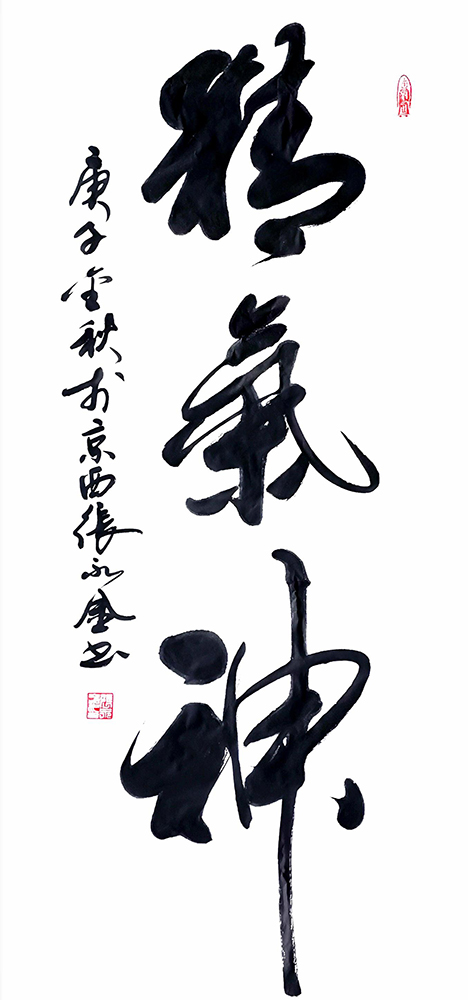 精氣神
庚子金秋於京西張永盛書